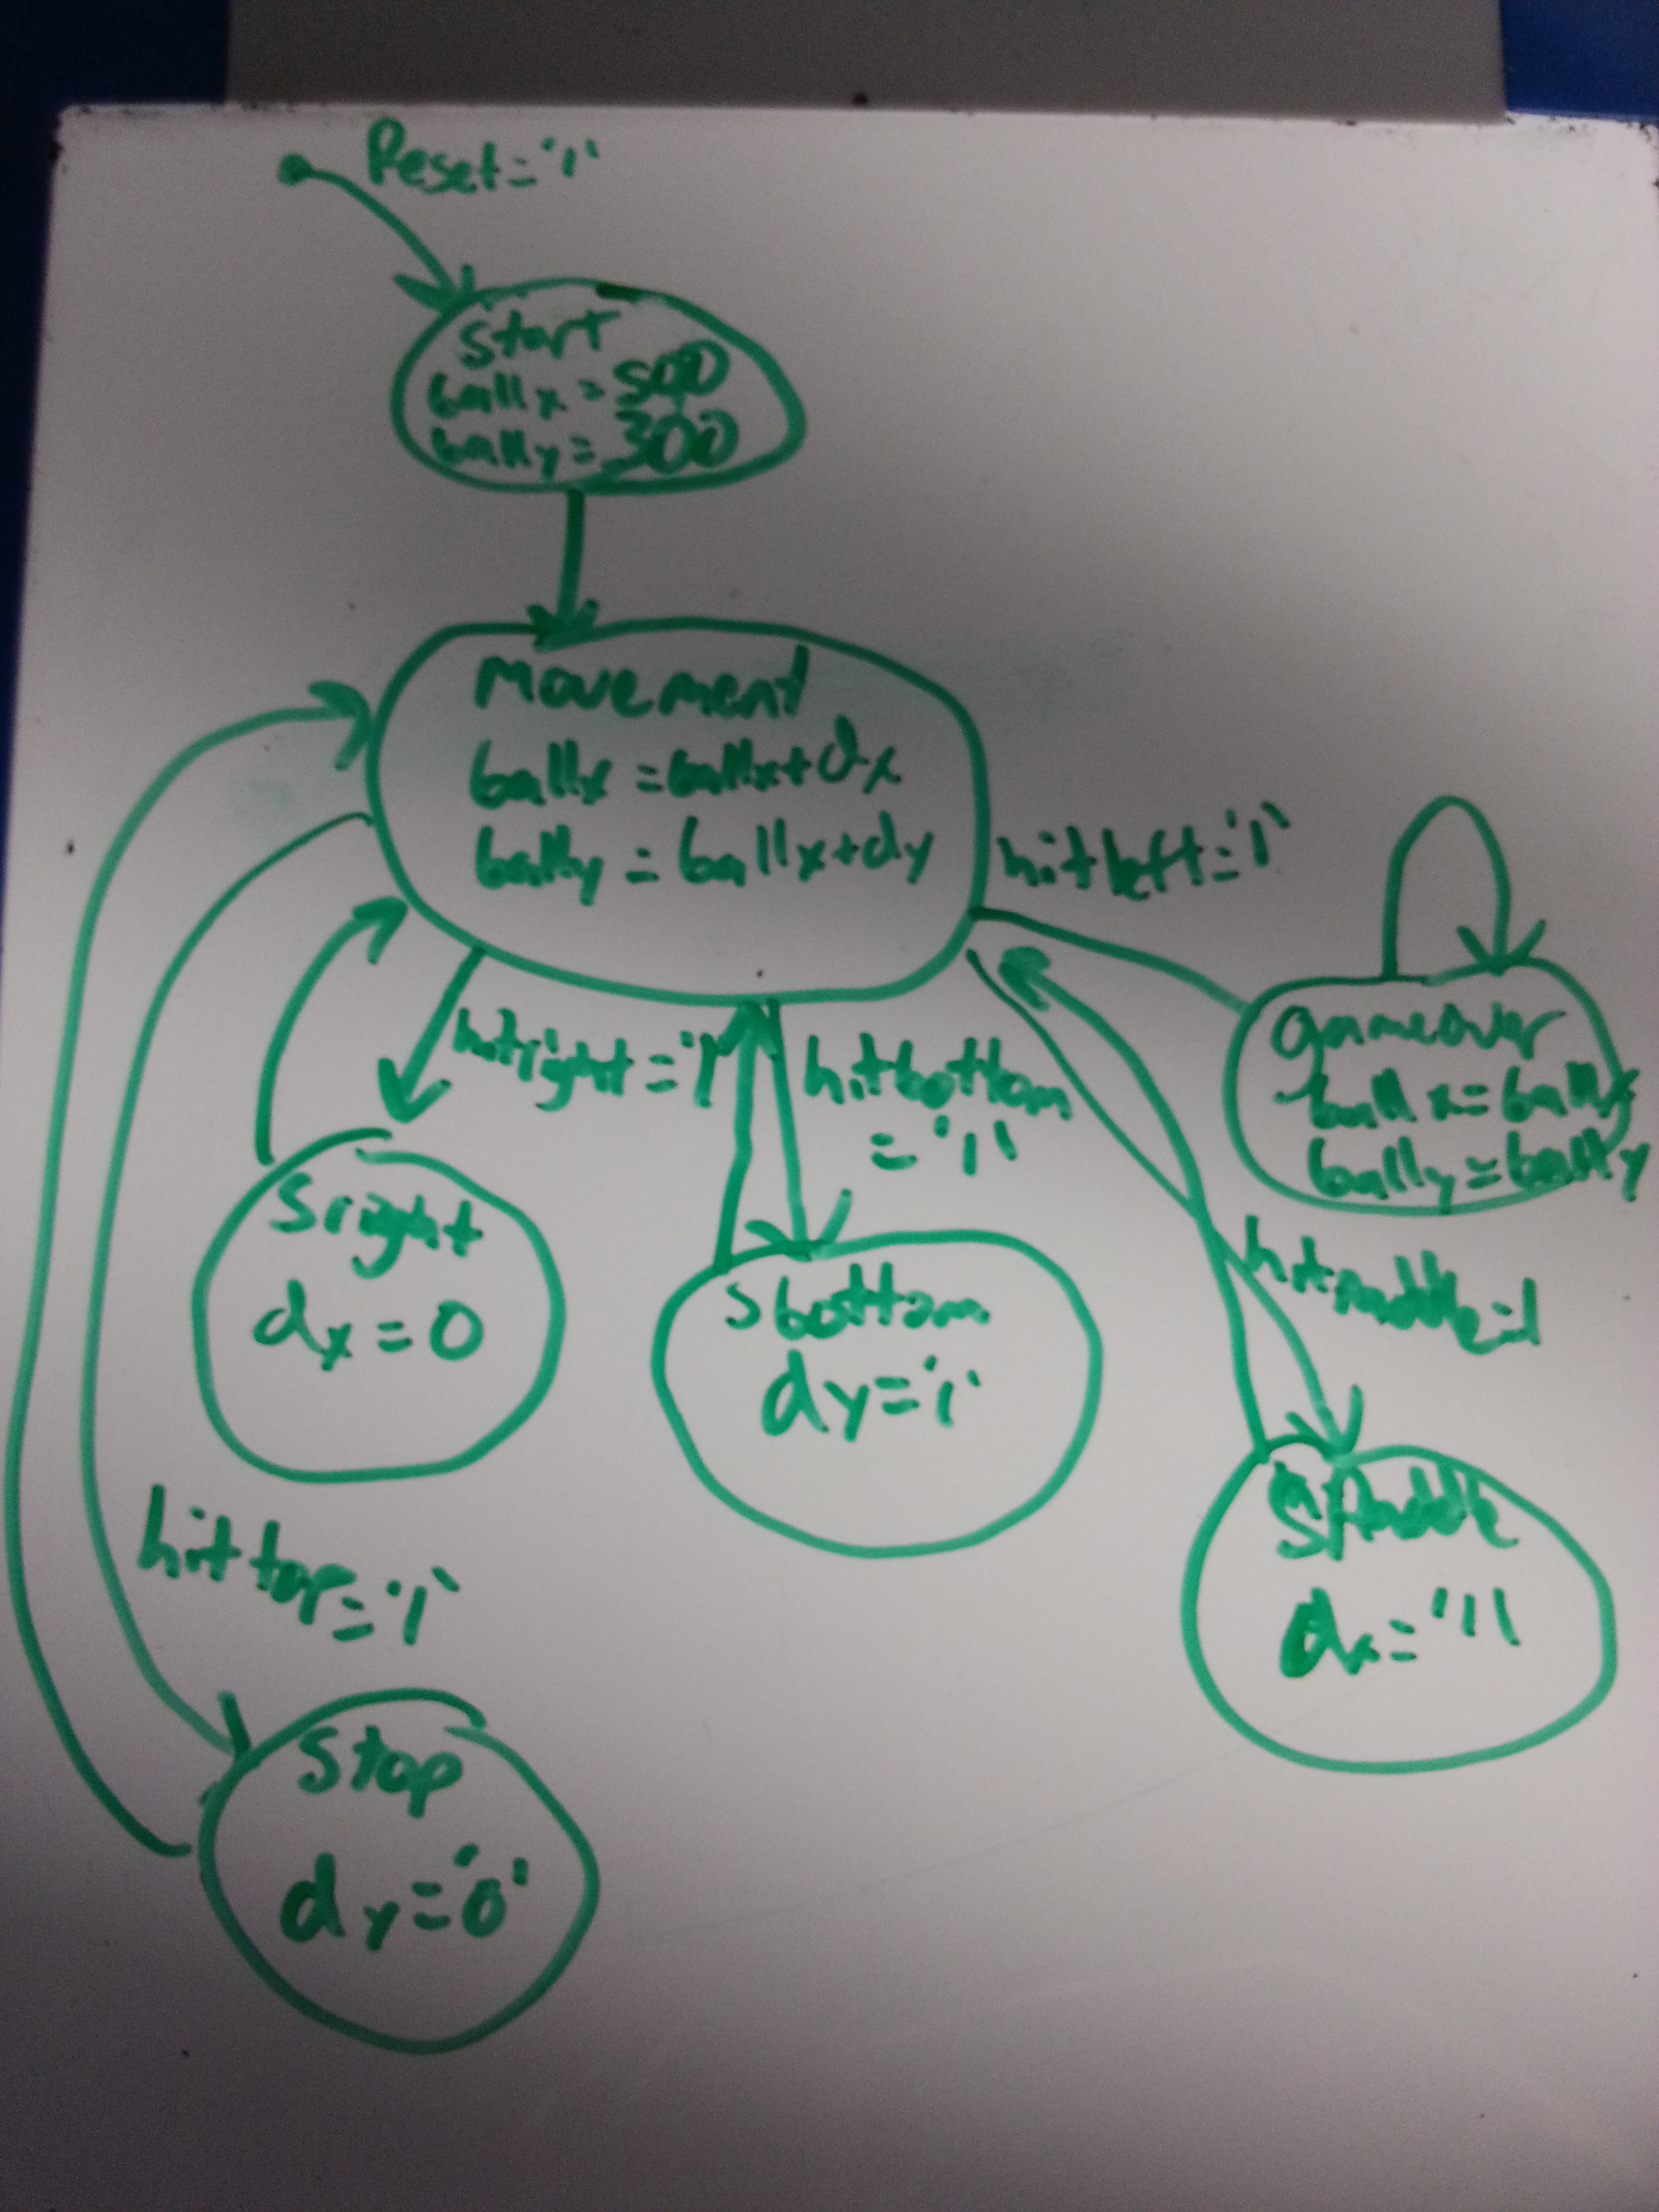 Reset='1'
start
ballx=500
bally=300
Movement
ballx=ballx+dx
bally=ballx+dy
hitleft='1'
gameover
ballx=ballx
bally=bally
hitright='1'
hitbottom
='1'
Sright
dx=0
Sbottom
dy='1'
hitpaddle=1
Spaddle
dx='1'
hittop='1'
Stop
dy='0'